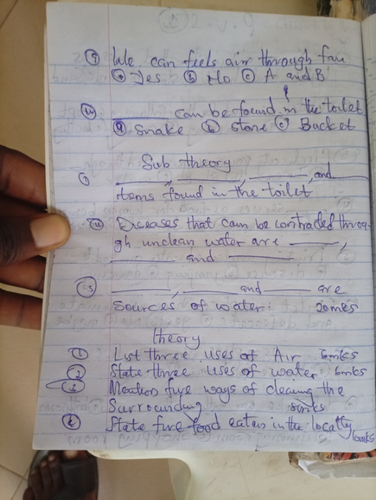 ③ We can feels air through fan
ⓐ Yes ⓑ No ⓒ A and B
④ ______ can be found in the toilet
ⓐ Snake ⓑ stone ⓒ Bucket
Sub theory
① ______, ______, ______, and ______
items found in the toilet
② Diseases that can be contracted throu-
gh unclean water are ______,
______ and ______
③ ______, ______ and ______ are
Sources of water. 20mks
theory
① List three uses of Air 6mks
② State three uses of water 6mks
③ Mention five ways of cleaning the
Surrounding 5mks
④ State five food eaten in the locality